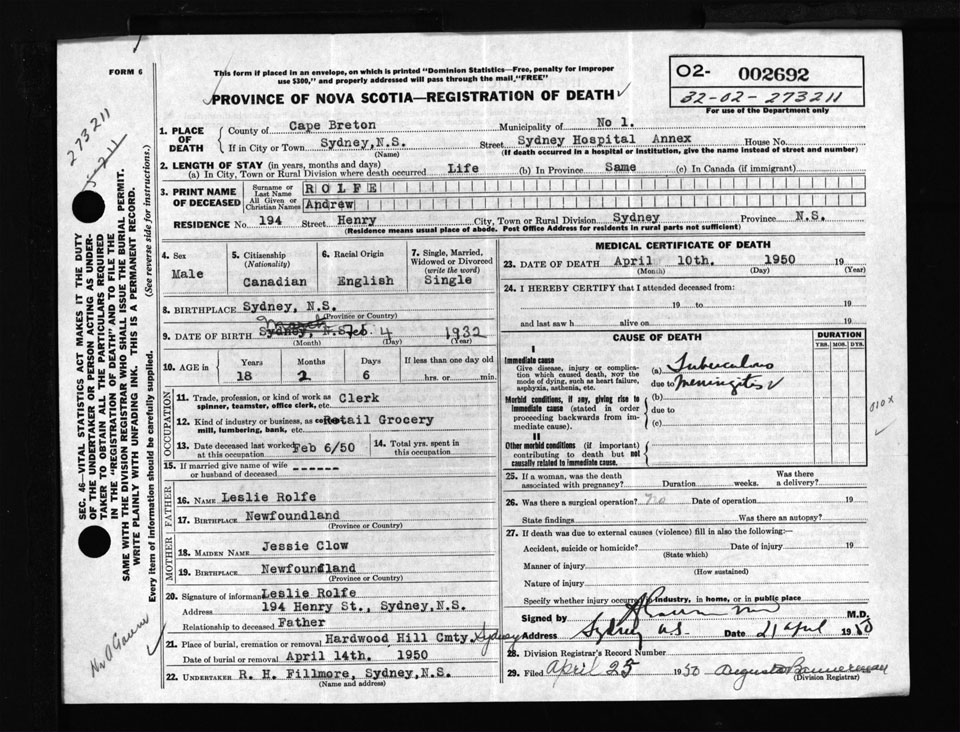 FORM 6
This form if placed in an envelope, on which is printed "Dominion Statistics—Free, penalty for improper
use $300," and properly addressed will pass through the mail "FREE"
PROVINCE OF NOVA SCOTIA—REGISTRATION OF DEATH
O2- 002692
32-02-273211
For use of the Department only
273211
SEC. 46 VITAL STATISTICS ACT MAKES IT THE DUTY
OF THE UNDERTAKER OR PERSON ACTING AS UNDER-
TAKER TO OBTAIN ALL THE PARTICULARS REQUIRED
IN THE "REGISTRATION OF DEATH" AND TO FILE THE
SAME WITH THE DIVISION REGISTRAR WHO SHALL ISSUE THE BURIAL PERMIT.
WRITE PLAINLY WITH UNFADING INK. THIS IS A PERMANENT RECORD.
Every item of information should be carefully supplied. (See reverse side for instructions.)
1. PLACE OF DEATH
County of Cape Breton Municipality of No 1.
If in City or Town Sydney, N.S. Street Sydney Hospital Annex House No.
(Name) (If death occurred in a hospital or institution, give the name instead of street and number)
2. LENGTH OF STAY (in years, months and days)
(a) In City, Town or Rural Division where death occurred Life (b) In Province Same (c) In Canada (if immigrant)
3. PRINT NAME OF DECEASED
Surname or Last Name ROLFE
All Given or Christian Names Andrew
RESIDENCE No. 194 Street Henry City, Town or Rural Division Sydney Province N.S.
(Residence means usual place of abode. Post Office Address for residents in rural parts not sufficient)
4. Sex Male
5. Citizenship (Nationality) Canadian
6. Racial Origin English
7. Single, Married, Widowed or Divorced (write the word) Single
8. BIRTHPLACE Sydney, N.S.
(Province or Country)
9. DATE OF BIRTH Sydney, N.S. Feb. 4 1932
(Month) (Day) (Year)
10. AGE in Years 18 Months 2 Days 6 If less than one day old hrs. or min.
OCCUPATION
11. Trade, profession, or kind of work as spinner, teamster, office clerk, etc. Clerk
12. Kind of industry or business, as mill, lumbering, bank, etc. Retail Grocery
13. Date deceased last worked at this occupation Feb 6/50
14. Total yrs. spent in this occupation
15. If married give name of wife or husband of deceased ------
FATHER
16. NAME Leslie Rolfe
17. BIRTHPLACE Newfoundland
(Province or Country)
MOTHER
18. MAIDEN NAME Jessie Clow
19. BIRTHPLACE Newfoundland
(Province or Country)
20. Signature of informant Leslie Rolfe
Address 194 Henry St., Sydney, N.S.
Relationship to deceased Father
21. Place of burial, cremation or removal Hardwood Hill Cmty. Sydney
Date of burial or removal April 14th. 1950
22. UNDERTAKER R. H. Fillmore, Sydney, N.S.
(Name and address)
MEDICAL CERTIFICATE OF DEATH
23. DATE OF DEATH April 10th. 1950 19
(Month) (Day) (Year)
24. I HEREBY CERTIFY that I attended deceased from:
19 to 19
and last saw h alive on 19
CAUSE OF DEATH
DURATION
YRS. MOS. DYS.
I
Immediate cause
Give disease, injury or complica-
tion which caused death, NOT the
mode of dying, such as heart failure,
asphyxia, asthenia, etc.
(a) Tuberculous
due to Meningitis
Morbid conditions, if any, giving rise to
immediate cause (stated in order
proceeding backwards from im-
mediate cause).
(b)
due to
(c)
010 X
II
Other morbid conditions (if important)
contributing to death but not
causally related to immediate cause.
25. If a woman, was the death associated with pregnancy? Duration weeks. Was there a delivery?
26. Was there a surgical operation? no Date of operation 19
State findings Was there an autopsy?
27. If death was due to external causes (violence) fill in also the following:—
Accident, suicide or homicide? Date of injury 19
(State which)
Manner of injury
(How sustained)
Nature of injury
Specify whether injury occurred in industry, in home, or in public place
Signed by M.D.
Address Sydney N.S. Date 21 April 1950
28. Division Registrar's Record Number
29. Filed April 25 1950
(Division Registrar)